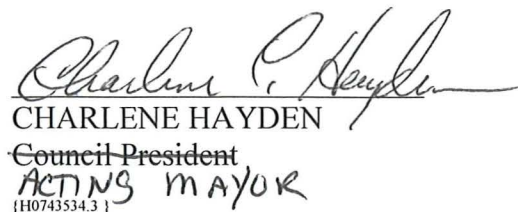 Charlene P. Hayden
CHARLENE HAYDEN
Council President
ACTING MAYOR
{H0743534.3 }